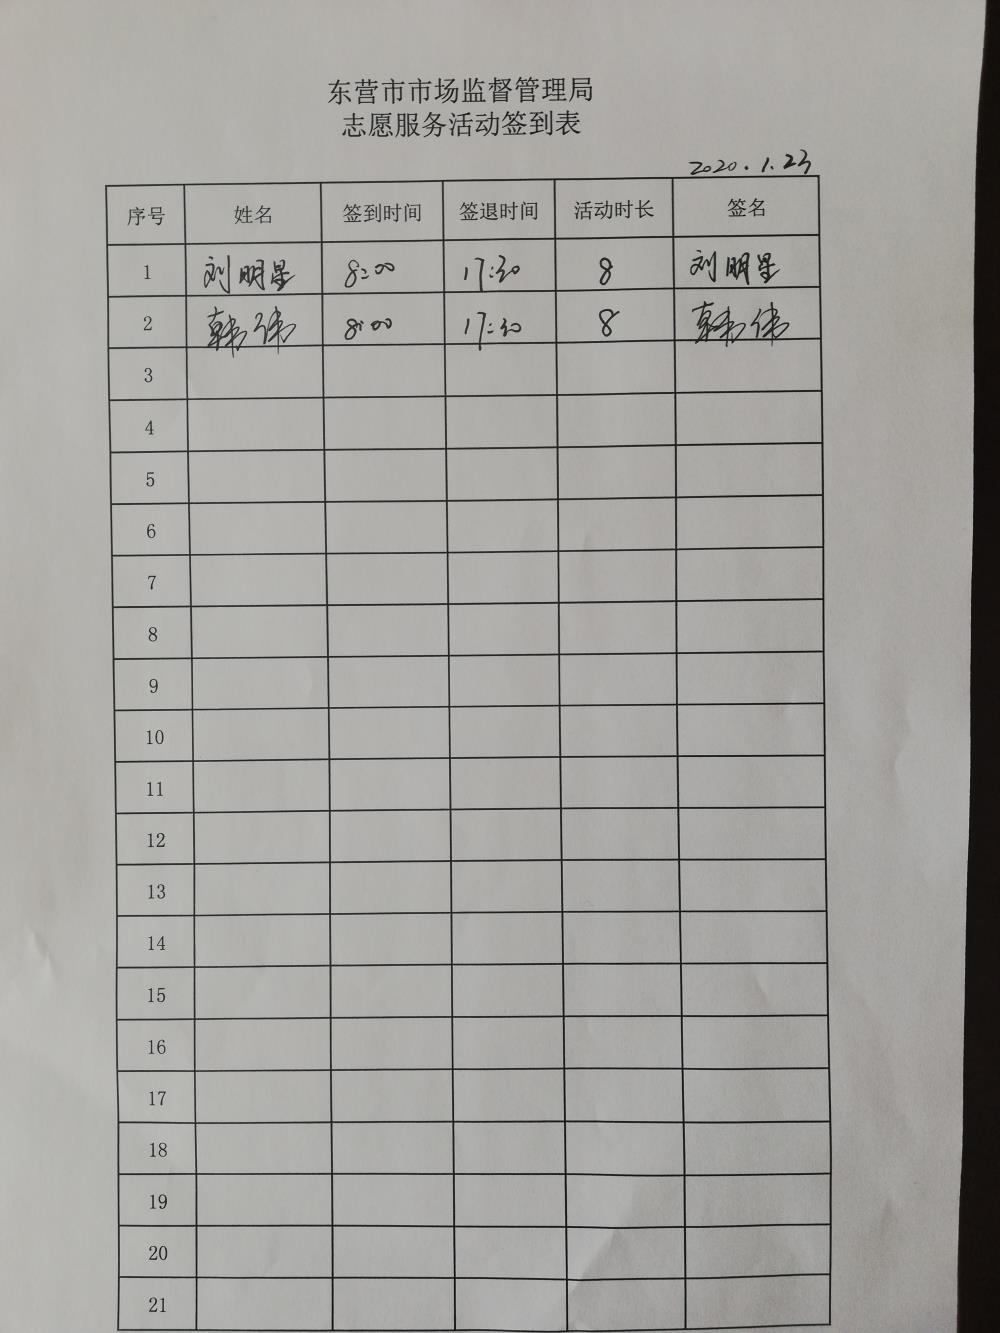 东营市市场监督管理局
志愿服务活动签到表
2020.1.23
序号 姓名 签到时间 签退时间 活动时长 签名
1 刘明星 8:00 17:30 8 刘明星
2 韩伟 8:00 17:30 8 韩伟
3
4
5
6
7
8
9
10
11
12
13
14
15
16
17
18
19
20
21